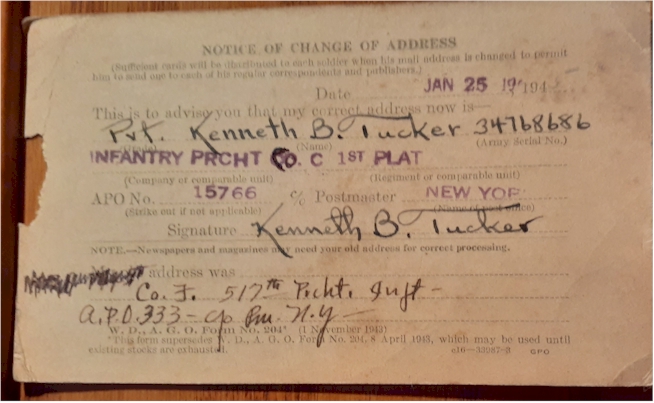 NOTICE OF CHANGE OF ADDRESS
(Sufficient cards will be distributed to each soldier when his mail address is changed to permit
him to send one to each of his regular correspondents and publishers.)
Date JAN 25 19 194
This is to advise you that my correct address now is—
Pvt. Kenneth B. Tucker 34768686
(Name) (Army Serial No.)
INFANTRY PRCHT CO. C 1ST PLAT
(Company or comparable unit) (Regiment or comparable unit)
APO No. 15766 c/o Postmaster NEW YOR
(Strike out if not applicable) (Name of post office)
Signature Kenneth B. Tucker
NOTE.—Newspapers and magazines may need your old address for correct processing.
address was
Co. F. 517th Prcht. Inft-
A.P.O. 333 - c/o Pm. N.Y-
W. D., A. G. O. Form No. 204* (1 November 1943)
*This form supersedes W. D., A. G. O. Form No. 204, 8 April 1943, which may be used until
existing stocks are exhausted. GPO